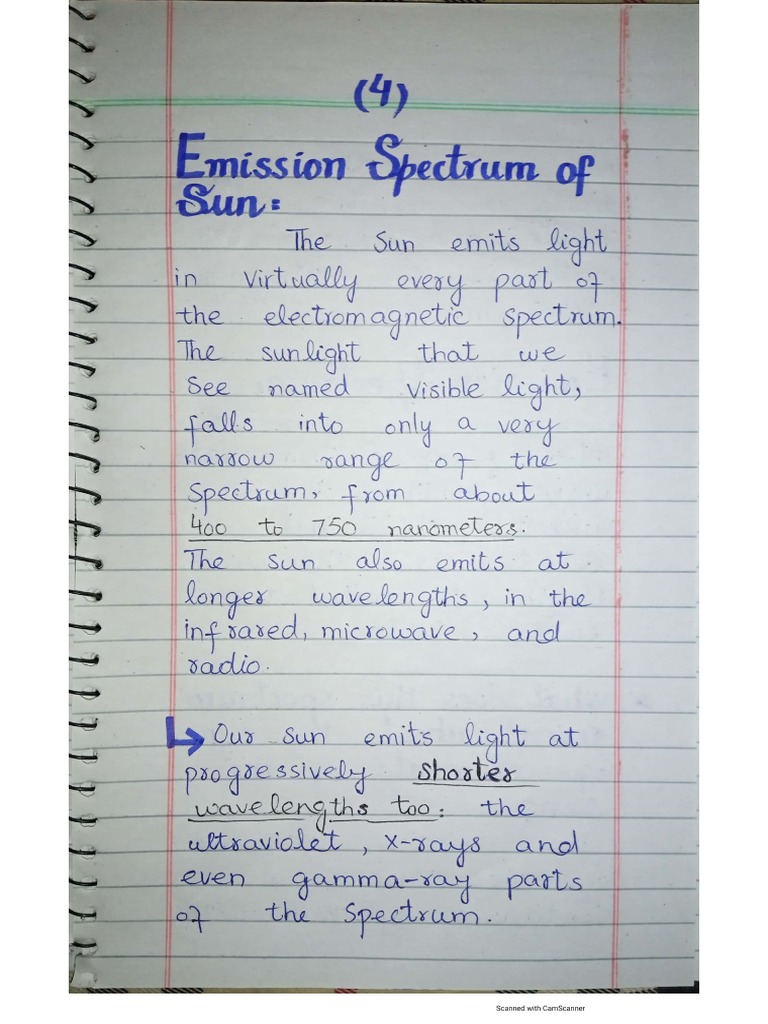 (4)
Emission Spectrum of
Sun:
The Sun emits light
in virtually every part of
the electromagnetic spectrum.
The sunlight that we
See named visible light,
falls into only a very
narrow range of the
spectrum, from about
400 to 750 nanometers.
The sun also emits at
longer wavelengths, in the
infrared, microwave, and
radio.
Our sun emits light at
progressively shorter
wavelengths too: the
ultraviolet, x-rays and
even gamma-ray parts
of the spectrum.
Scanned with CamScanner